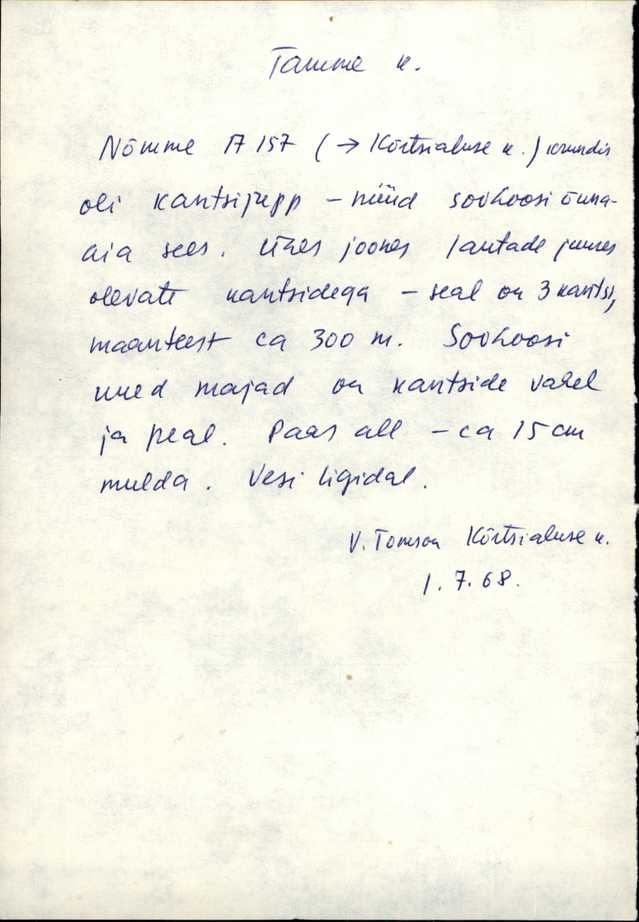 Tamme k.
Nõmme A 157 (→ Kõrtsialuse k.) krundis
oli kantsijupp – nüüd sovhoosi õuna-
aia sees. Ühes joones lautade juures
olevate kantsidega – seal on 3 kantsi,
maanteest ca 300 m. Sovhoosi
uued majad on kantside vahel
ja peal. Paas all – ca 15 cm
mulda. Vesi ligidal.
V. Tomson Kõrtsialuse k.
1.7.68.